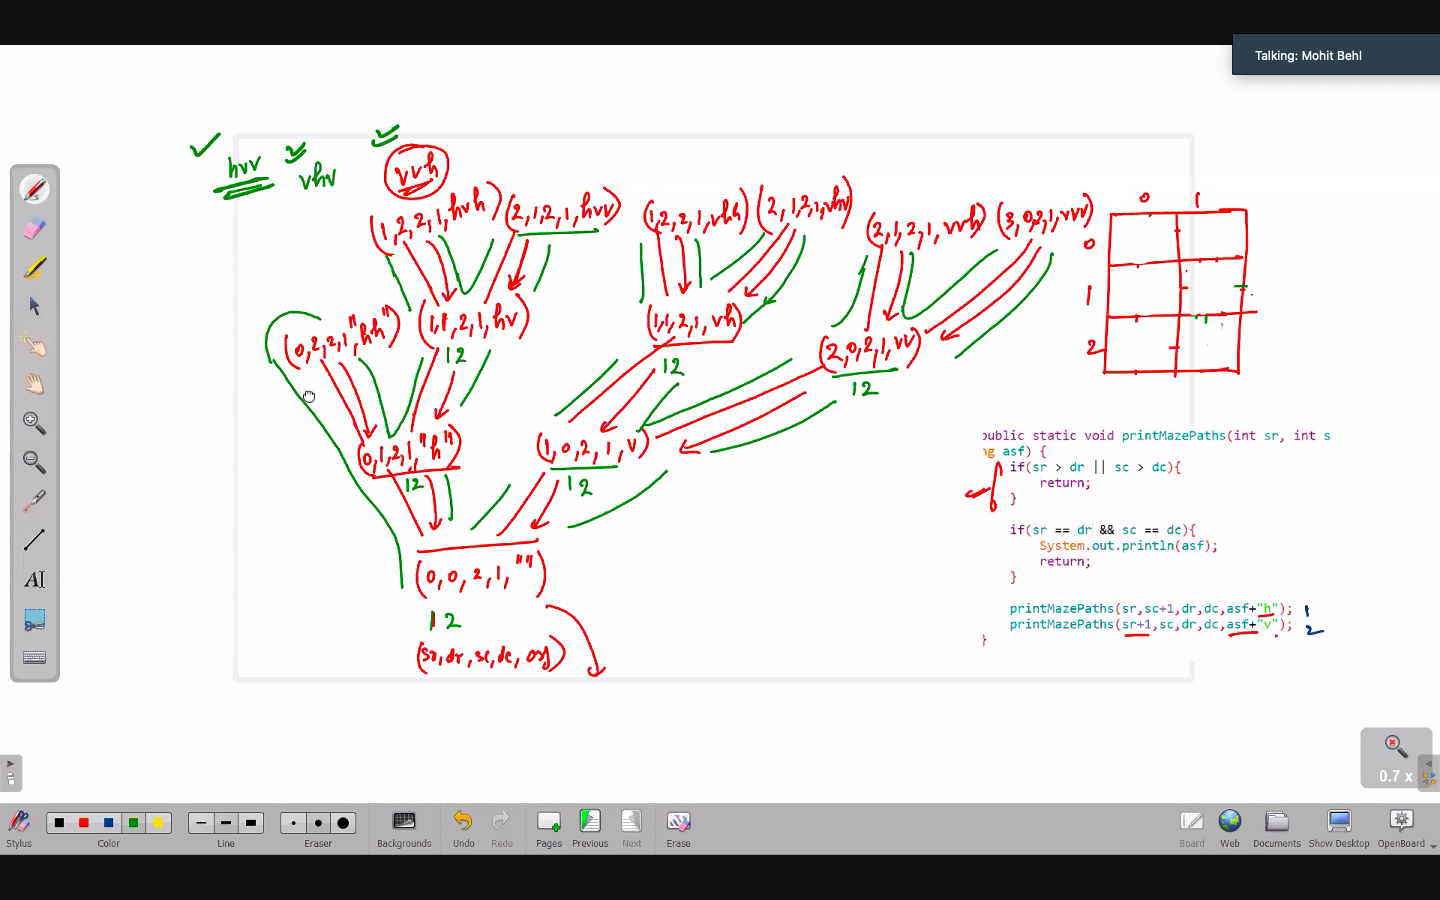 Talking: Mohit Behl
hvv
vhv
vvh
(1,2,2,1,hvh)
(2,1,2,1,hvv)
(1,2,2,1,vhh)
(2,1,2,1,vhv)
(2,1,2,1,vvh)
(3,0,2,1,vvv)
0 1
0
1
2
(0,2,2,1,"hh")
(1,1,2,1,hv)
12
(1,1,2,1,vh)
12
(2,0,2,1,vv)
12
(0,1,2,1,"h")
12
(1,0,2,1,v)
12
(0,0,2,1,"")
12
(sr,dr,sc,dc,asf)
public static void printMazePaths(int sr, int s
ng asf) {
if(sr > dr || sc > dc){
return;
}
if(sr == dr && sc == dc){
System.out.println(asf);
return;
}
printMazePaths(sr,sc+1,dr,dc,asf+"h"); 1
printMazePaths(sr+1,sc,dr,dc,asf+"v"); 2
}
AI
0.7 x
Stylus
Color
Line
Eraser
Backgrounds
Undo
Redo
Pages
Previous
Next
Erase
Board
Web
Documents
Show Desktop
OpenBoard